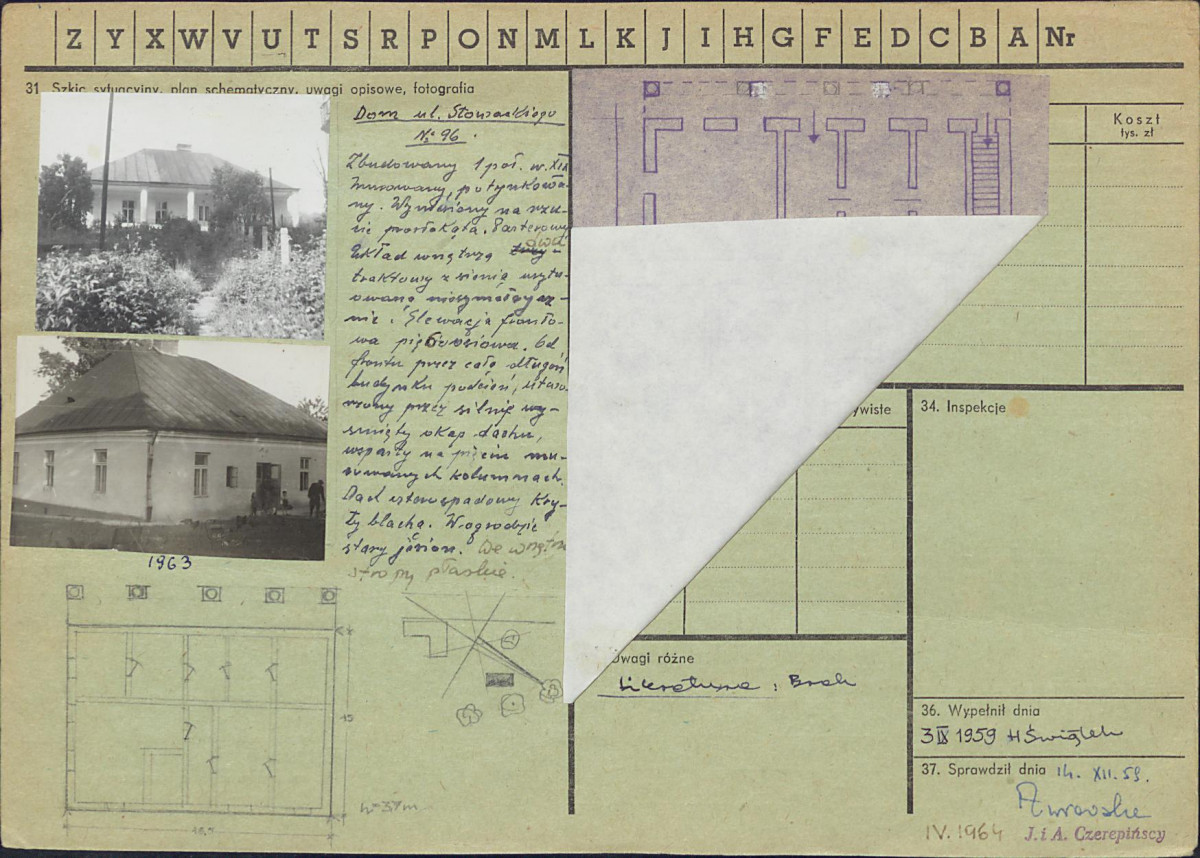 Z Y X W V U T S R P O N M L K J I H G F E D C B A Nr
31 Szkic sytuacyjny, plan schematyczny, uwagi opisowe, fotografia
Dom ul. Słowackiego
№ 96.
Zbudowany 1 poł. w. XIX
Murowany, potynkowa-
ny. Wzniesiony na rzu-
cie prostokąta. Parterowy
Układ wnętrza dwu-
traktowy z sienią usytu-
owaną niesymetrycz-
nie. Elewacja fronto-
wa pięcioosiowa. Od
frontu przez całą długość
budynku podcień, utwo-
rzony przez silnie wy-
sunięty okap dachu,
wsparty na pięciu mu-
rowanych kolumnach.
Dach czterospadowy kry-
ty blachą. W ogrodzie
stary jesion. We wnętrzu
stropy płaskie.
1963
15
h=3,7m
Koszt
tys. zł
ywiste
34. Inspekcje
Uwagi różne
Literatura: Brak
36. Wypełnił dnia
3 IX 1959 H Świątek
37. Sprawdził dnia 14. XII. 59.
IV. 1964 J. i A. Czerepińscy